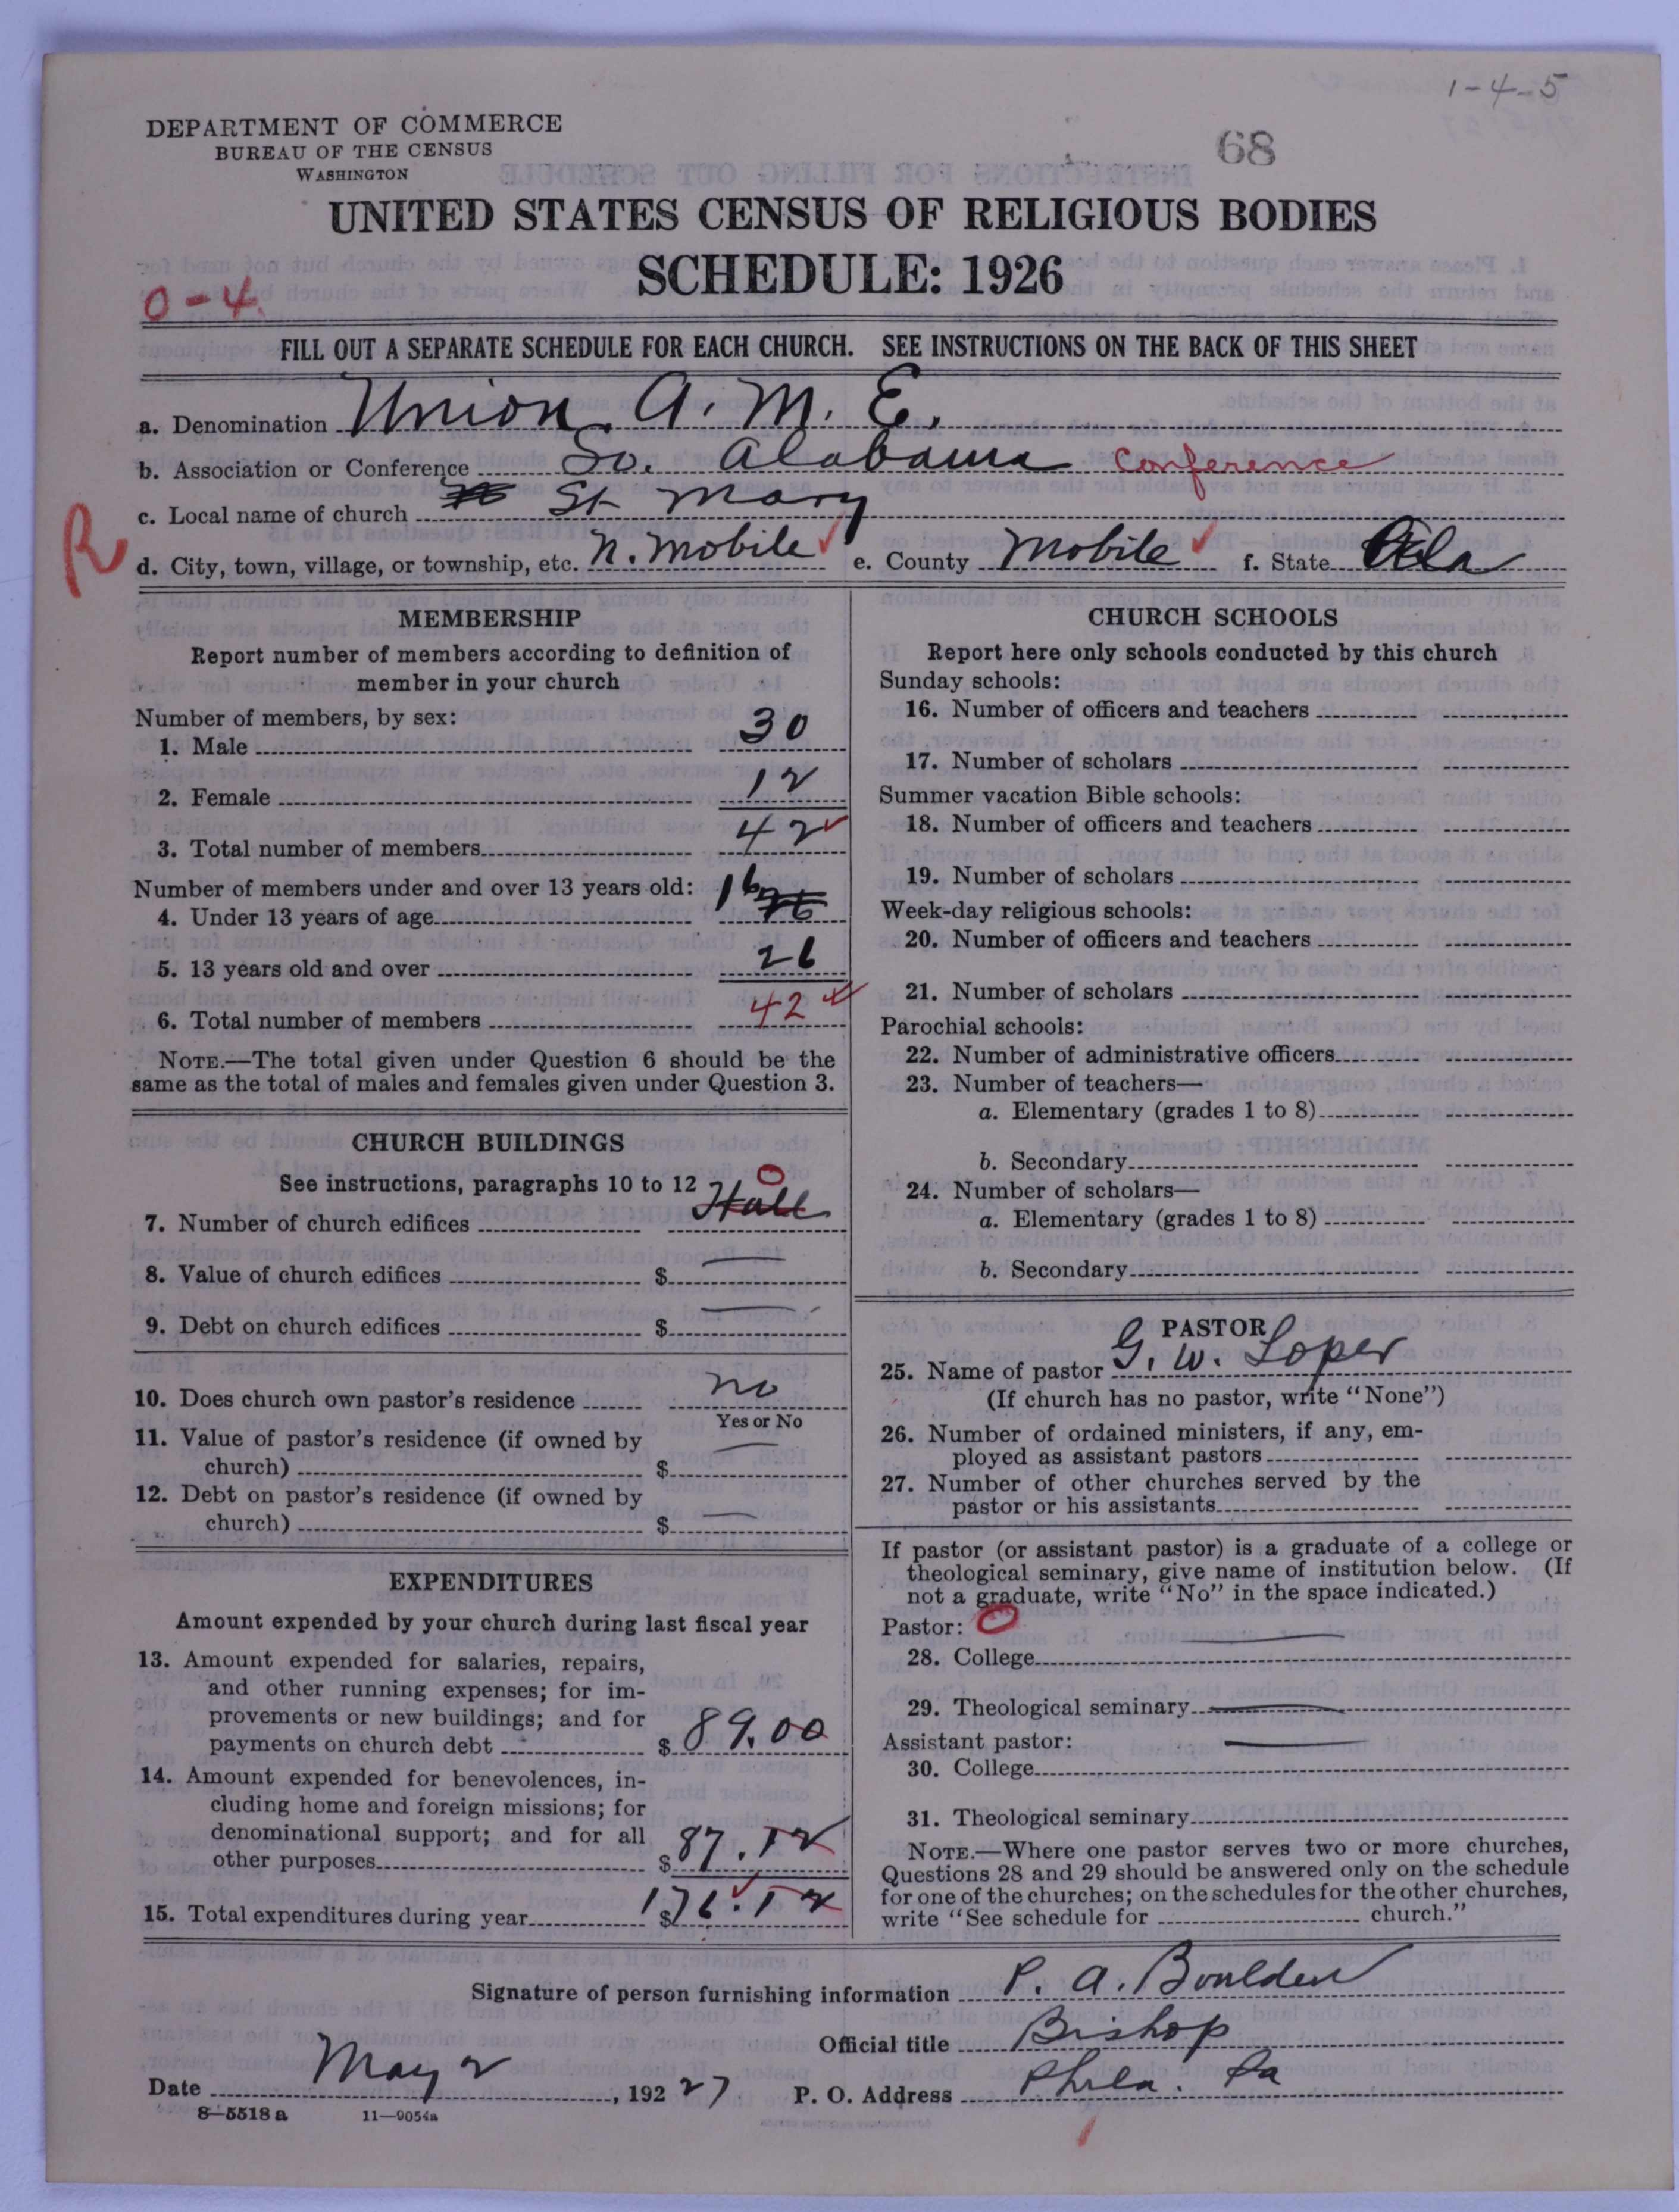 1-4-5
DEPARTMENT OF COMMERCE
BUREAU OF THE CENSUS
WASHINGTON
68
UNITED STATES CENSUS OF RELIGIOUS BODIES
SCHEDULE: 1926
0-4.
FILL OUT A SEPARATE SCHEDULE FOR EACH CHURCH. SEE INSTRUCTIONS ON THE BACK OF THIS SHEET
a. Denomination Union A. M. E.
b. Association or Conference So. Alabama Conference
c. Local name of church St Mary
R
d. City, town, village, or township, etc. N. Mobile e. County Mobile f. State Ala
MEMBERSHIP
Report number of members according to definition of
member in your church
Number of members, by sex:
1. Male 30
2. Female 12
3. Total number of members 42
Number of members under and over 13 years old:
4. Under 13 years of age 16
5. 13 years old and over 26
6. Total number of members 42
NOTE.—The total given under Question 6 should be the
same as the total of males and females given under Question 3.
CHURCH BUILDINGS
See instructions, paragraphs 10 to 12
7. Number of church edifices Hall 0
8. Value of church edifices $ —
9. Debt on church edifices $ —
10. Does church own pastor's residence no
Yes or No
11. Value of pastor's residence (if owned by
church) $ —
12. Debt on pastor's residence (if owned by
church) $ —
EXPENDITURES
Amount expended by your church during last fiscal year
13. Amount expended for salaries, repairs,
and other running expenses; for im-
provements or new buildings; and for
payments on church debt $ 89.00
14. Amount expended for benevolences, in-
cluding home and foreign missions; for
denominational support; and for all
other purposes $ 87.12
15. Total expenditures during year $ 176.12
CHURCH SCHOOLS
Report here only schools conducted by this church
Sunday schools:
16. Number of officers and teachers
17. Number of scholars
Summer vacation Bible schools:
18. Number of officers and teachers
19. Number of scholars
Week-day religious schools:
20. Number of officers and teachers
21. Number of scholars
Parochial schools:
22. Number of administrative officers
23. Number of teachers—
a. Elementary (grades 1 to 8)
b. Secondary
24. Number of scholars—
a. Elementary (grades 1 to 8)
b. Secondary
PASTOR
25. Name of pastor G. W. Loper
(If church has no pastor, write "None")
26. Number of ordained ministers, if any, em-
ployed as assistant pastors
27. Number of other churches served by the
pastor or his assistants
If pastor (or assistant pastor) is a graduate of a college or
theological seminary, give name of institution below. (If
not a graduate, write "No" in the space indicated.)
Pastor: 0
28. College —
29. Theological seminary —
Assistant pastor:
30. College —
31. Theological seminary
NOTE.—Where one pastor serves two or more churches,
Questions 28 and 29 should be answered only on the schedule
for one of the churches; on the schedules for the other churches,
write "See schedule for church."
Signature of person furnishing information P. A. Boulden
Official title Bishop
Date May 2, 1927 P. O. Address Phila. Pa
8—5518a 11—9054a